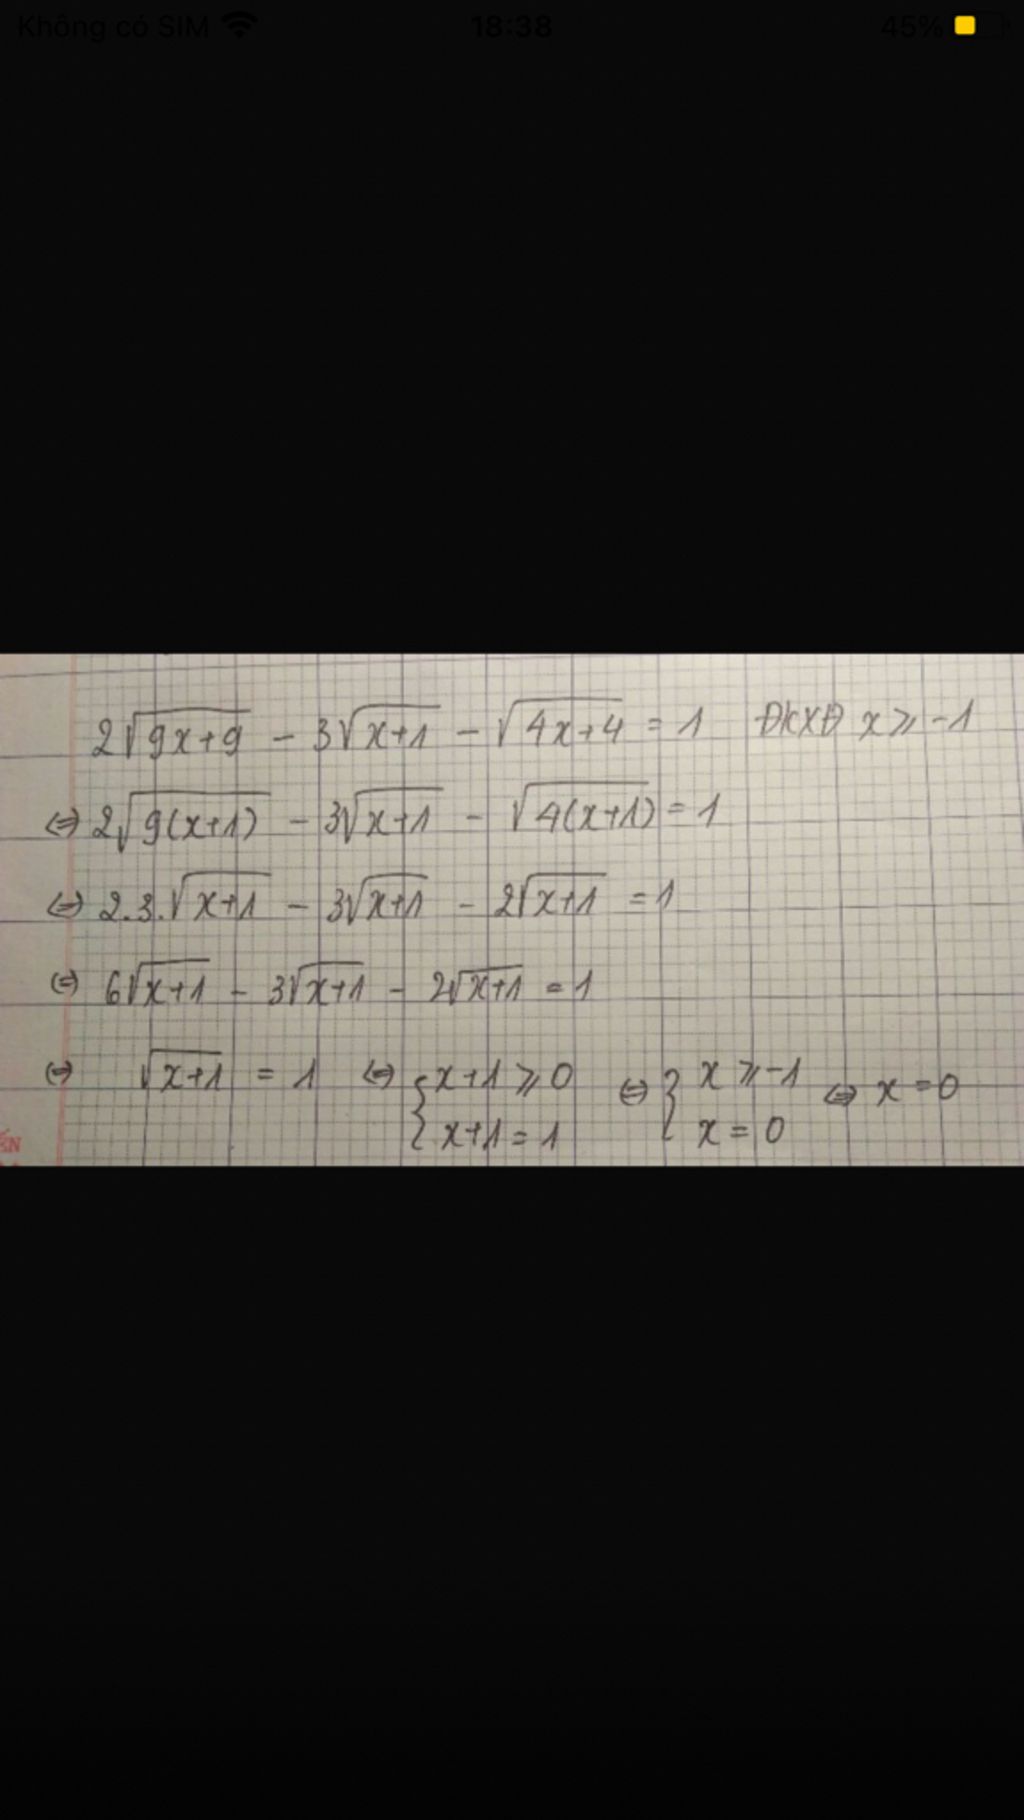 Không có SIM 18:38 45%
2√(9x+9) - 3√(x+1) - √(4x+4) = 1 ĐKXĐ x ⩾ -1
⇔ 2√(9(x+1)) - 3√(x+1) - √(4(x+1)) = 1
⇔ 2.3.√(x+1) - 3√(x+1) - 2√(x+1) = 1
⇔ 6√(x+1) - 3√(x+1) - 2√(x+1) = 1
⇔ √(x+1) = 1 ⇔ { x+1 ⩾ 0 ⇔ { x ⩾ -1 ⇔ x = 0
x+1 = 1 x = 0